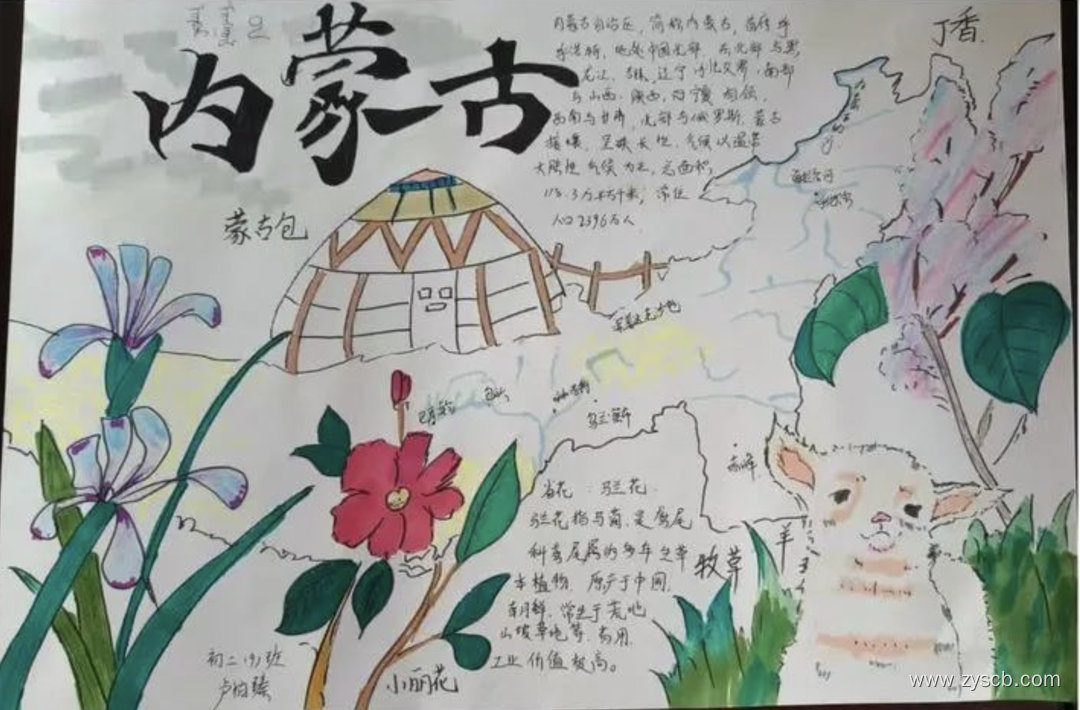 内蒙古
丁香
内蒙古自治区，简称内蒙古，首府呼
和浩特，地处中国北部，东北部与黑
龙江、吉林、辽宁、河北交界，南部
与山西、陕西、宁夏相邻，
西南与甘肃，北部与俄罗斯、蒙古
接壤，呈狭长性，气候以温带
大陆性气候为主，总面积
118.3万平方千米，常住
人口2396万人
蒙古包
乌兰察布
赤峰
省花：马兰花
马兰花指马蔺，是鸢尾
科鸢尾属的多年生草
本植物，原产于中国、
朝鲜，常生于荒地
山坡草地等，药用
工业价值极高。
牧草
羊
小丽花
初二(9)班
www.zyscb.com